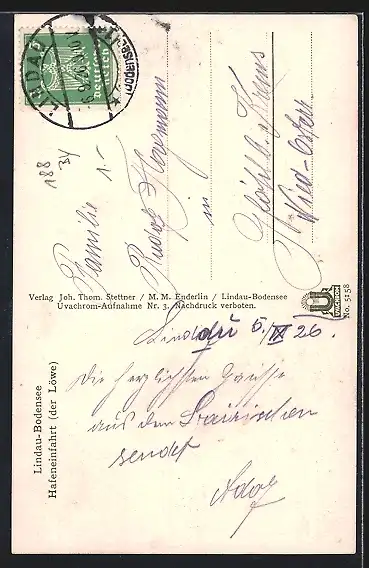 LINDAU
5 PFENNIG
188
34
1.-
Familie
Rudolf Horsmann
in
a. Kamp
Nied-Oesterr.
Verlag Joh. Thom. Stettner / M. M. Enderlin / Lindau-Bodensee
Uvachrom-Aufnahme Nr. 3. Nachdruck verboten.
UVACHROM
No. 5158
Lindau-Bodensee
Hafeneinfahrt (der Löwe)
Lindau 6/IX 26.
Die herzlichsten Grüße
aus dem Bairischen
sendet